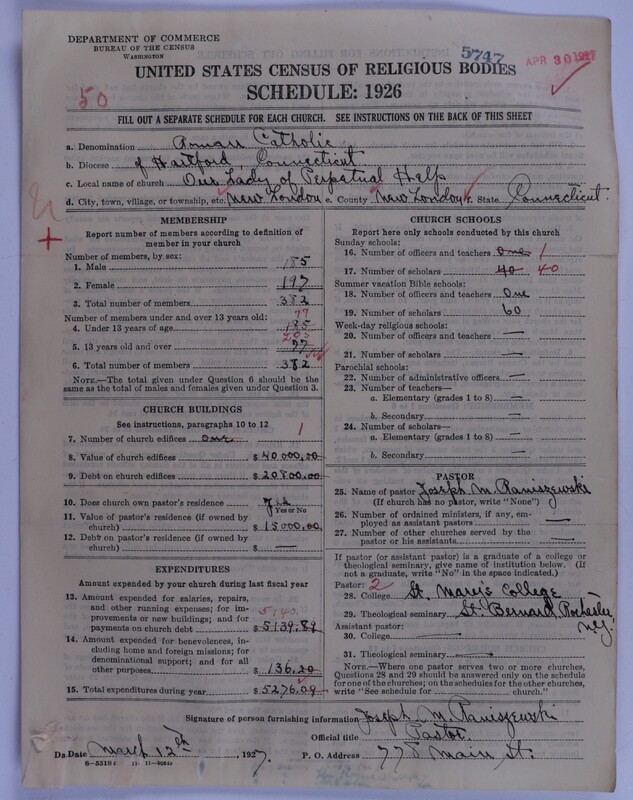 DEPARTMENT OF COMMERCE
BUREAU OF THE CENSUS
WASHINGTON
5747
APR 30 1927
UNITED STATES CENSUS OF RELIGIOUS BODIES
SCHEDULE: 1926
50
FILL OUT A SEPARATE SCHEDULE FOR EACH CHURCH. SEE INSTRUCTIONS ON THE BACK OF THIS SHEET
a. Denomination Roman Catholic
b. Diocese of Hartford, Connecticut.
c. Local name of church Our Lady of Perpetual Help
d. City, town, village, or township, etc. New London e. County New London f. State Connecticut.
MEMBERSHIP
Report number of members according to definition of member in your church
Number of members, by sex:
1. Male 185
2. Female 197
3. Total number of members 382
Number of members under and over 13 years old:
77
4. Under 13 years of age 185
5. 13 years old and over 77
6. Total number of members 382
NOTE.—The total given under Question 6 should be the same as the total of males and females given under Question 3.
CHURCH BUILDINGS
See instructions, paragraphs 10 to 12
7. Number of church edifices One 1
8. Value of church edifices $ 40000.00
9. Debt on church edifices $ 20800.00
10. Does church own pastor's residence Yes
Yes or No
11. Value of pastor's residence (if owned by church) $ 15000.00
12. Debt on pastor's residence (if owned by church) $ —
EXPENDITURES
Amount expended by your church during last fiscal year
13. Amount expended for salaries, repairs, and other running expenses; for improvements or new buildings; and for payments on church debt $ 5139.89
5140.
14. Amount expended for benevolences, including home and foreign missions; for denominational support; and for all other purposes $ 136.20
15. Total expenditures during year $ 5276.09
CHURCH SCHOOLS
Report here only schools conducted by this church
Sunday schools:
16. Number of officers and teachers One 1
17. Number of scholars 40 40
Summer vacation Bible schools:
18. Number of officers and teachers One
19. Number of scholars 60
Week-day religious schools:
20. Number of officers and teachers —
21. Number of scholars —
Parochial schools:
22. Number of administrative officers —
23. Number of teachers—
a. Elementary (grades 1 to 8) —
b. Secondary —
24. Number of scholars—
a. Elementary (grades 1 to 8) —
b. Secondary —
PASTOR
25. Name of pastor Joseph M. Raniszewski
(If church has no pastor, write "None")
26. Number of ordained ministers, if any, employed as assistant pastors —
27. Number of other churches served by the pastor or his assistants —
If pastor (or assistant pastor) is a graduate of a college or theological seminary, give name of institution below. (If not a graduate, write "No" in the space indicated.)
Pastor: 2
28. College St. Mary's College
29. Theological seminary St. Bernard Rochester N.Y.
Assistant pastor:
30. College —
31. Theological seminary —
NOTE.—Where one pastor serves two or more churches, Questions 28 and 29 should be answered only on the schedule for one of the churches; on the schedules for the other churches, write "See schedule for church."
Signature of person furnishing information Joseph M. Raniszewski
Official title Pastor.
Date March 12th, 1927. P. O. Address 778 Main St.
8-5318